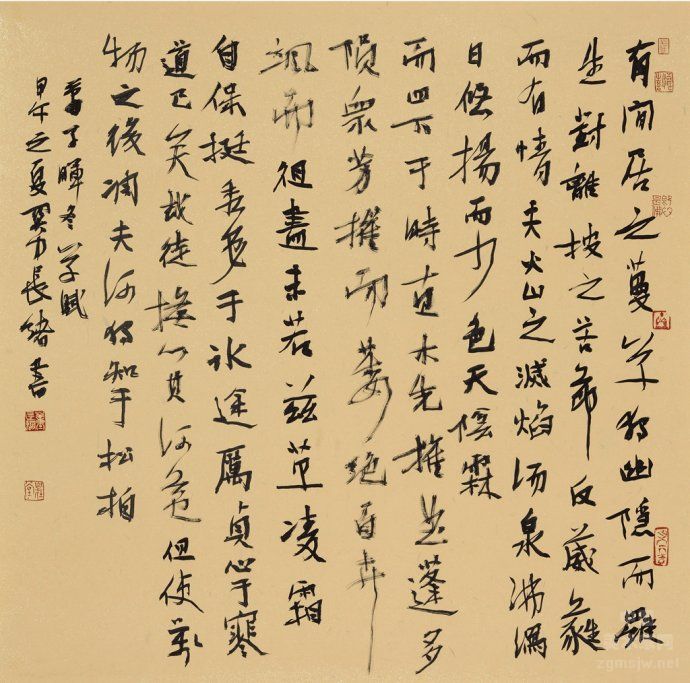 有閒居之蔓草独幽隱而羅
生對離披之苦節反葳蕤
而有情夫火山之滅焰汤泉沸瀉
日悠揚而少色天陰霖
而四下于時直木先摧曲蓬多
隕眾芳摧而萎絕百卉
颯而徂盡未若茲草凌霜
自保挺秀色于冰途厲貞心于寒
道已矣哉徒撫心其何益但使萬
物之後凋夫何独知于松柏
蕭子暉冬草賦
甲午之夏長緒書
zgmsjw.net